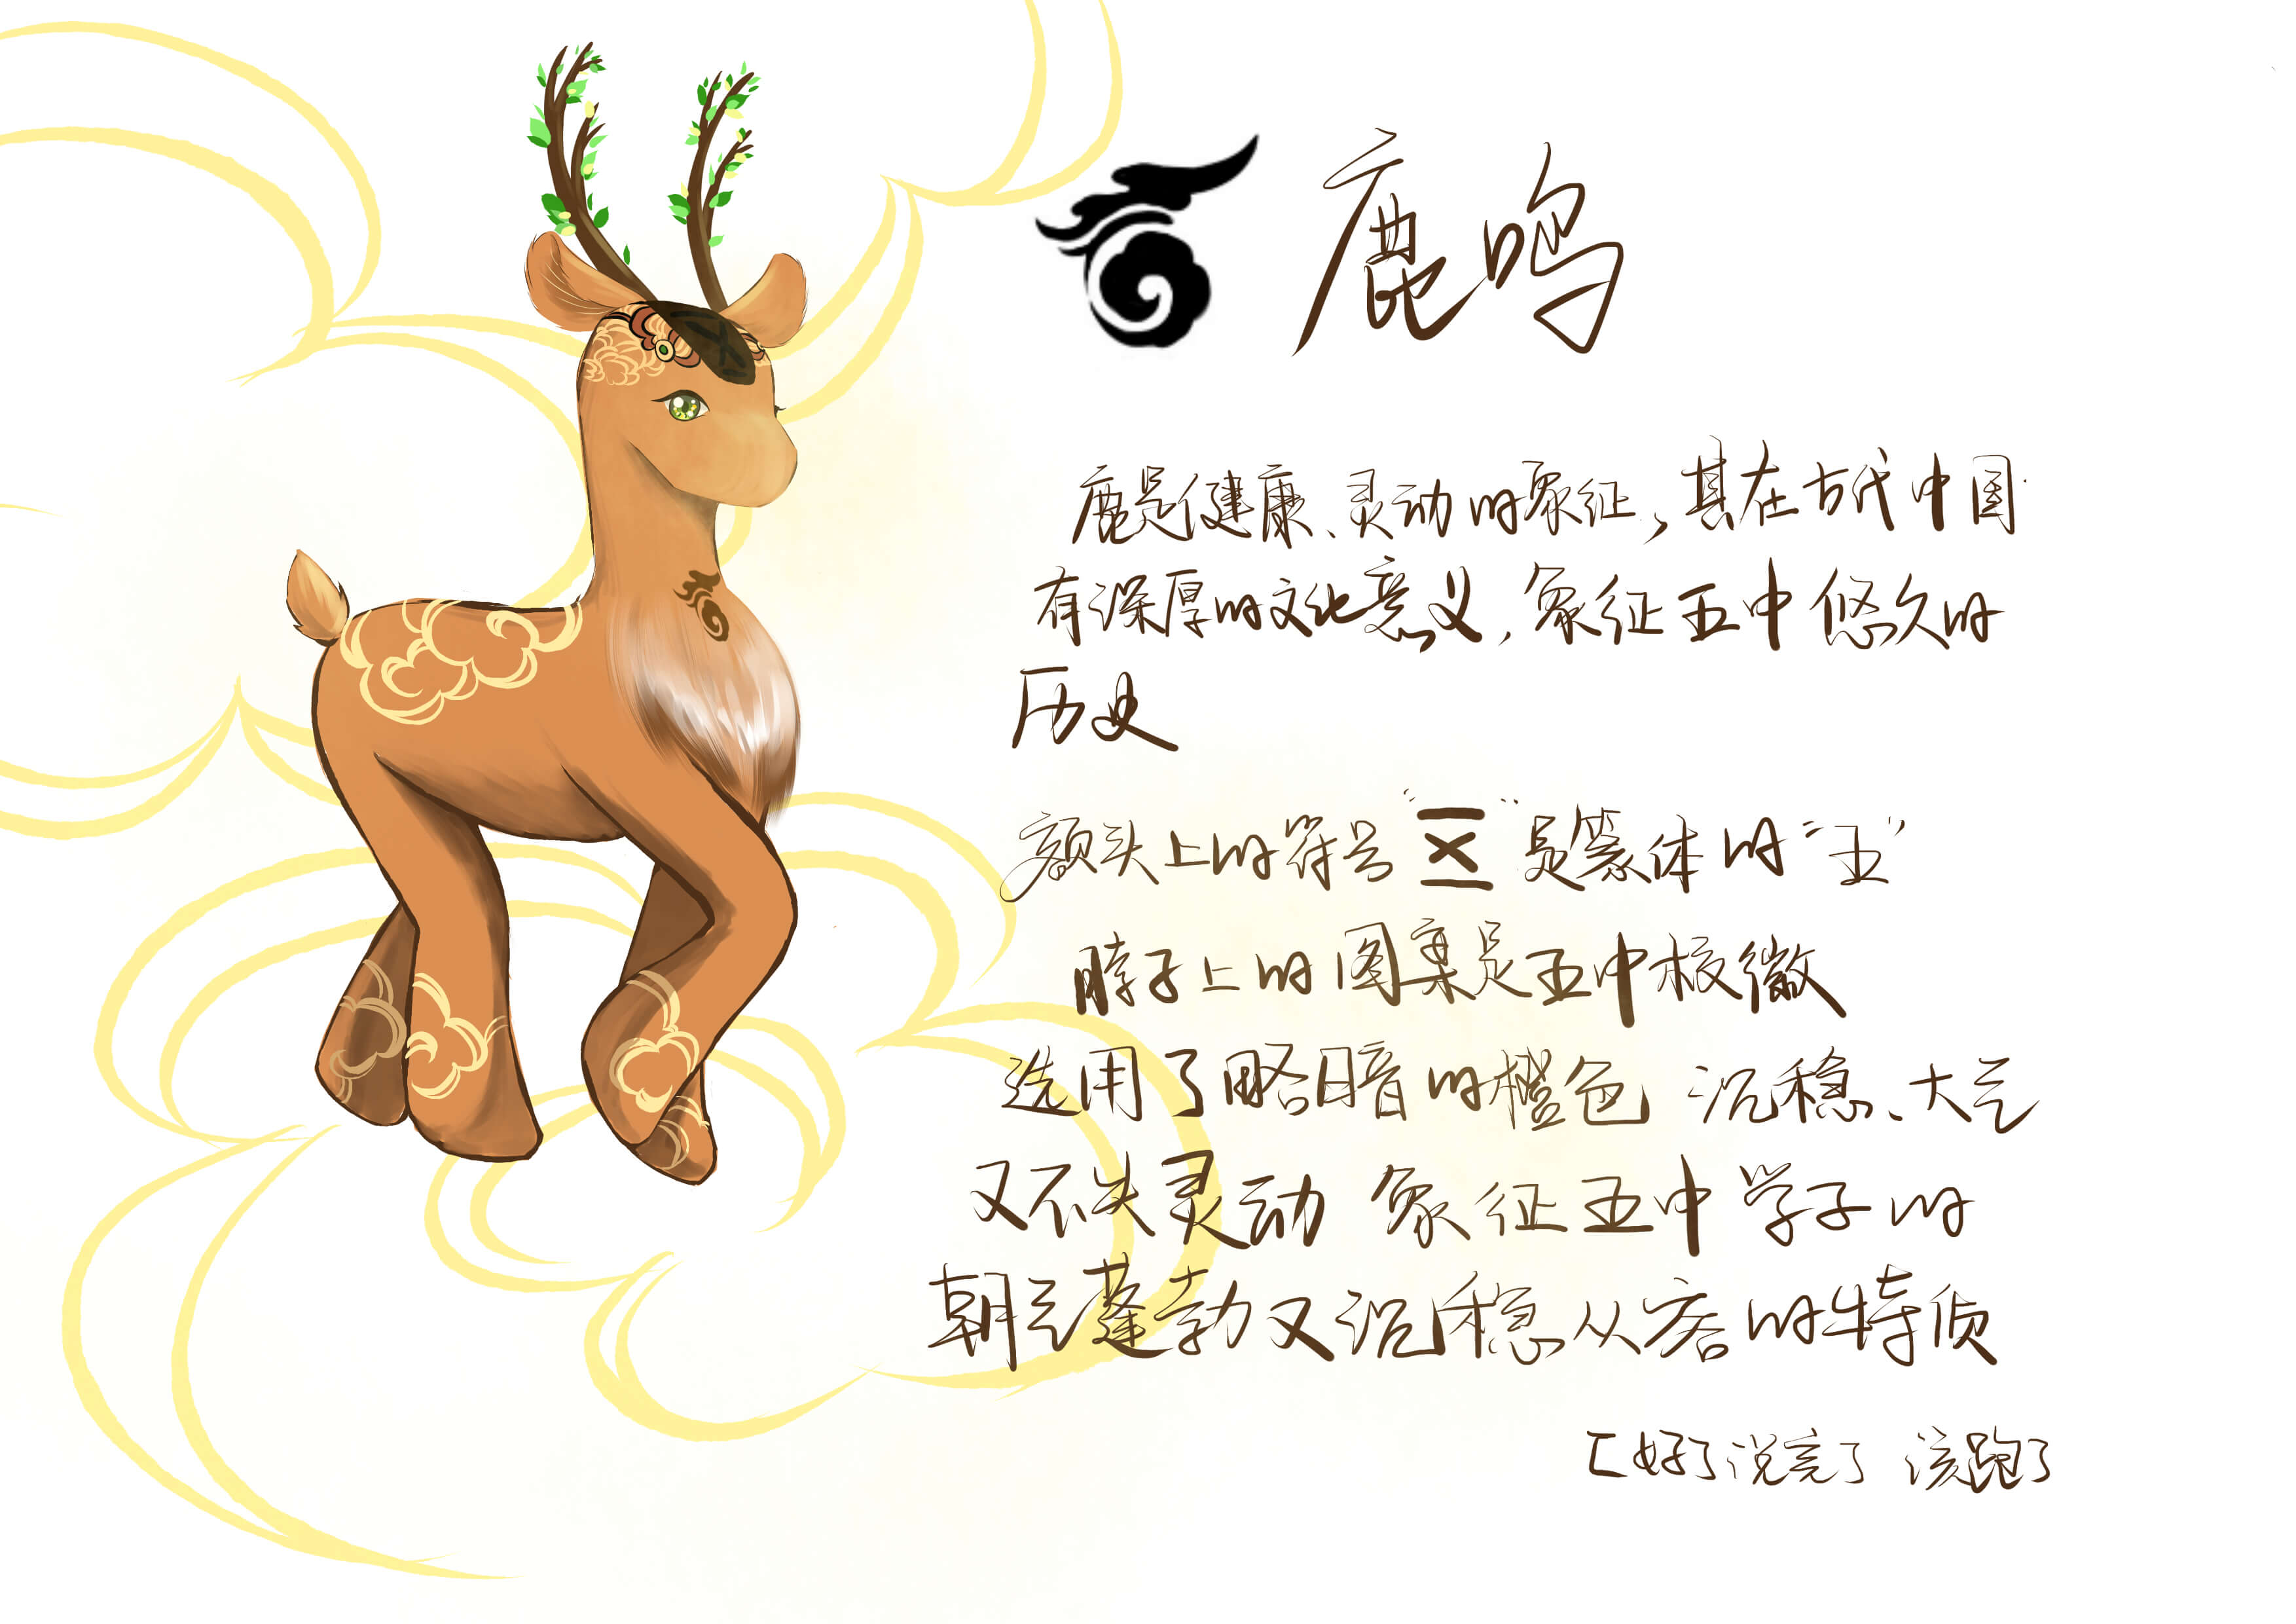 鹿鸣
鹿是健康、灵动的象征，其在古代中国
有深厚的文化意义，象征五中悠久的
历史
额头上的符号“㐅”是篆体的“五”
脖子上的图案是五中校徽
选用了略暗的橙色 沉稳、大气
又不失灵动 象征五中学子的
朝气蓬勃又沉稳从容的特质
[好了说完了 该跑了